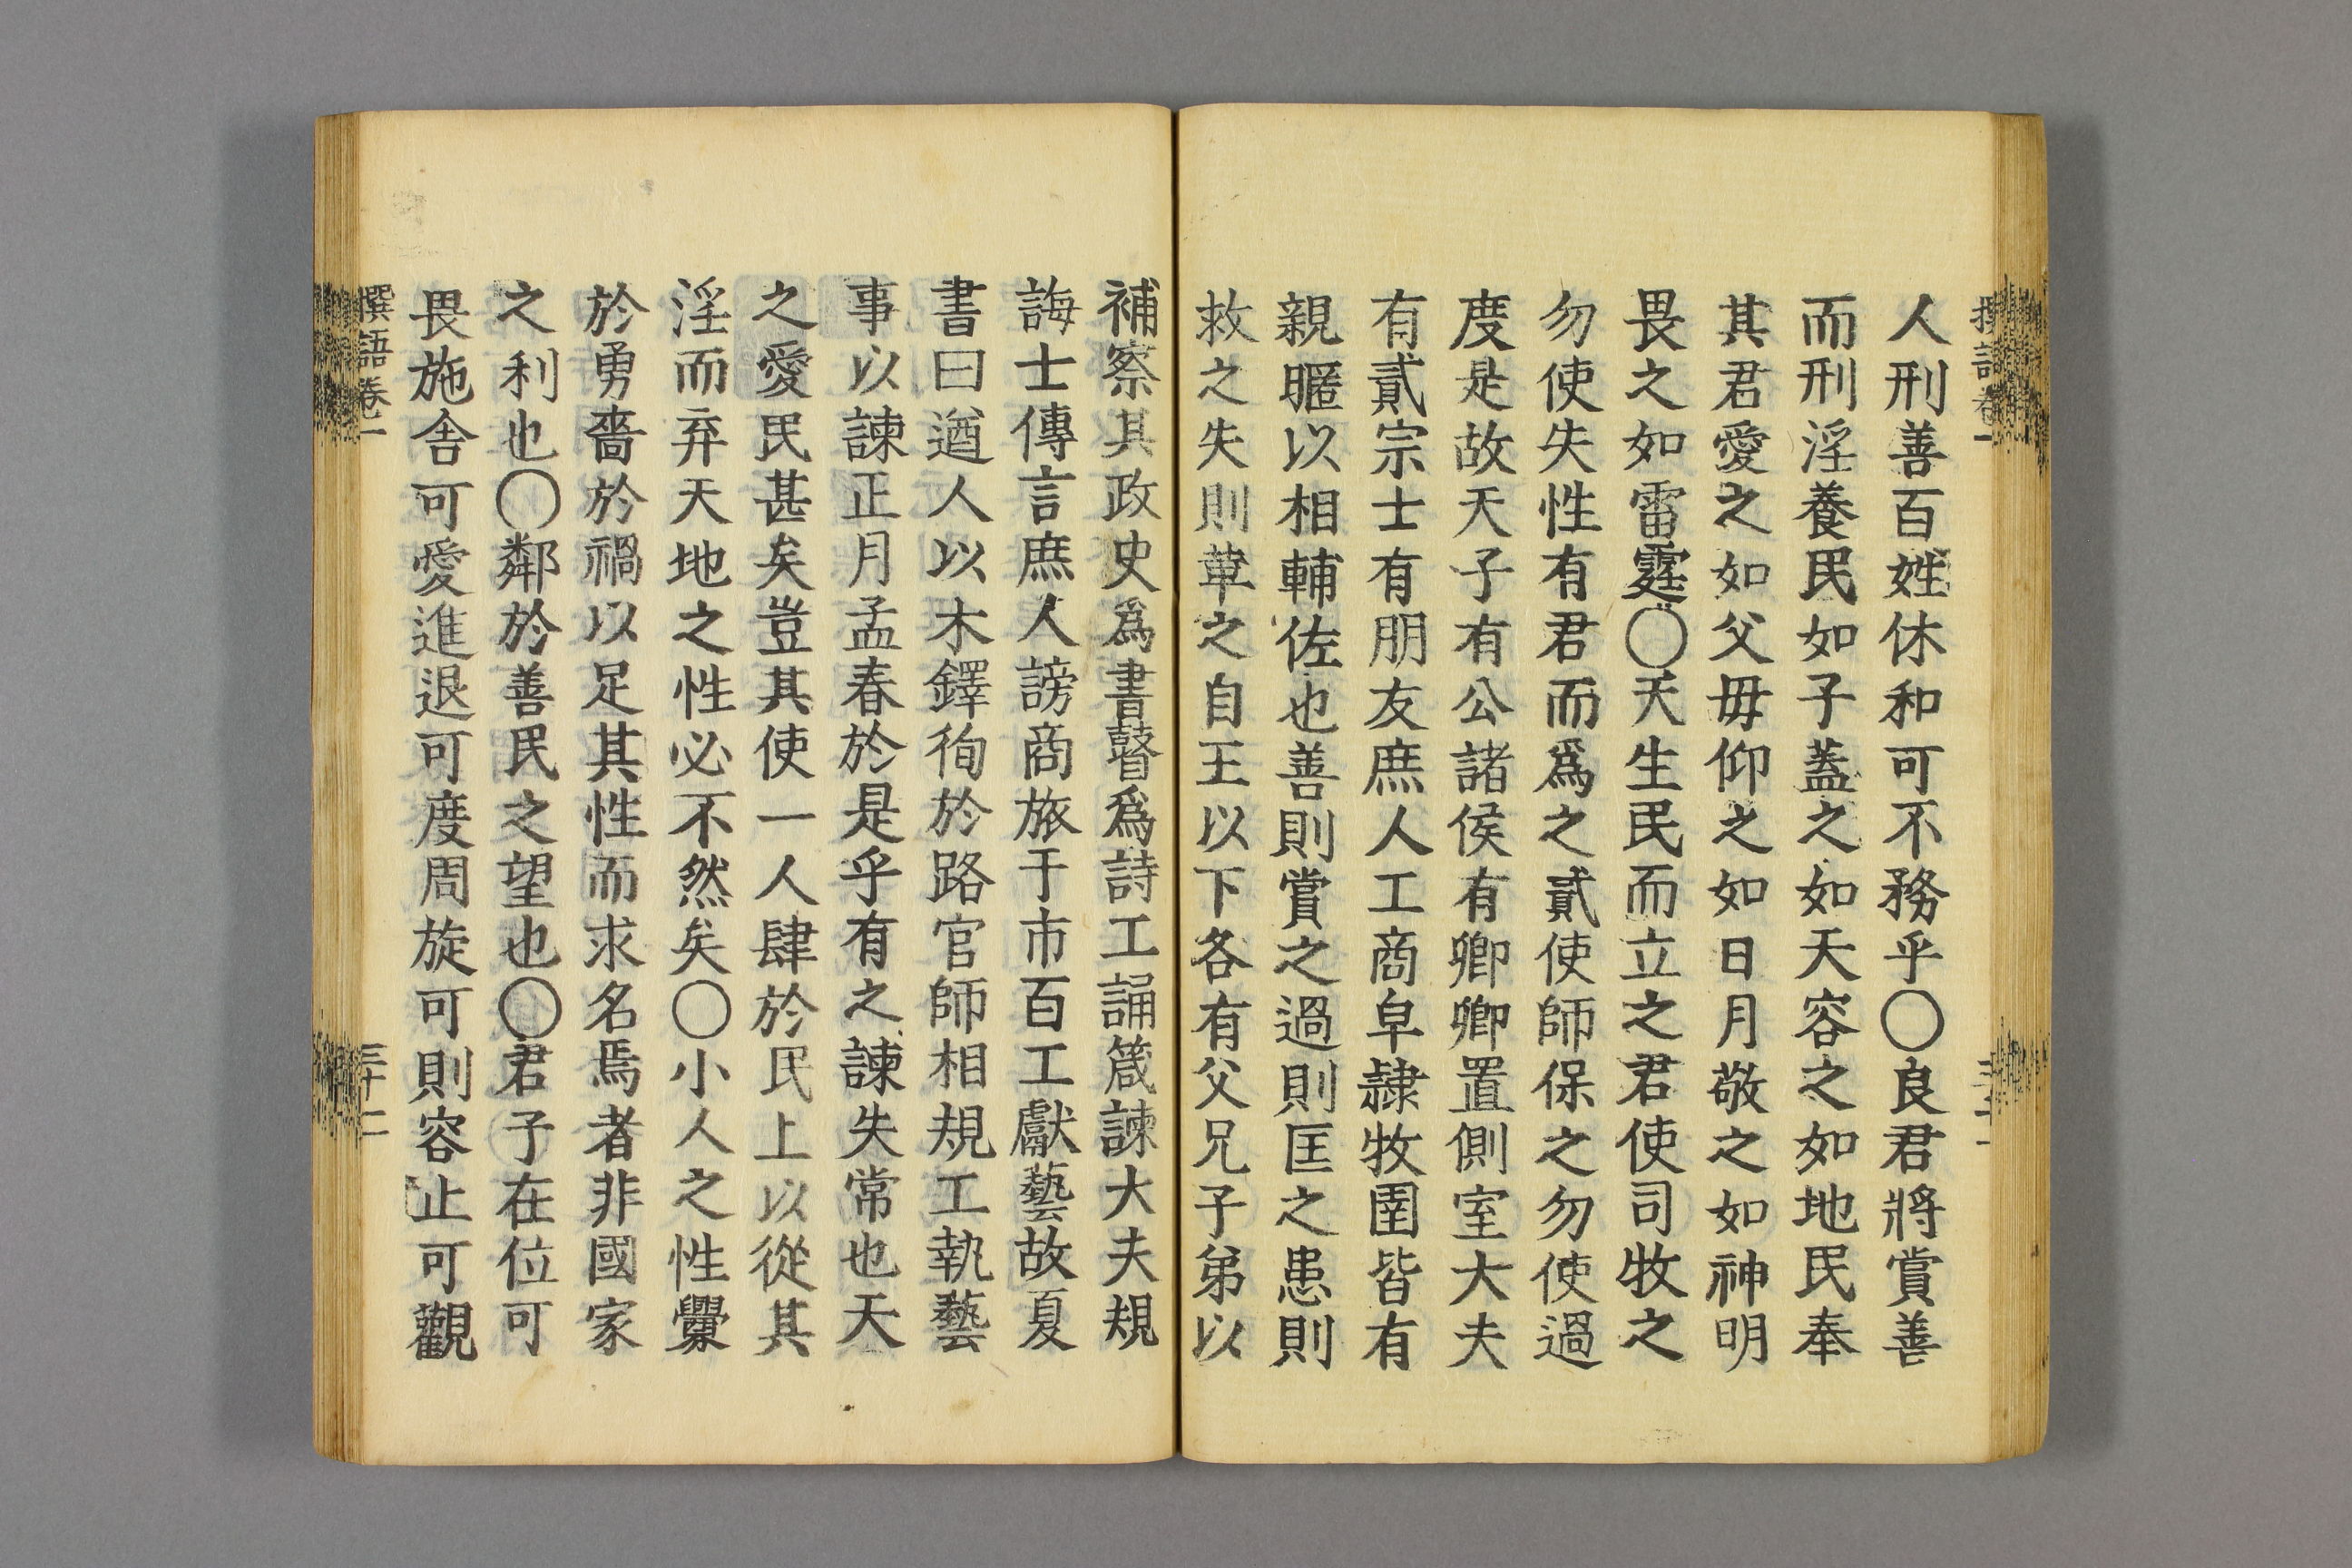 人刑善百姓休和可不務乎〇良君將賞善
而刑淫養民如子蓋之如天容之如地民奉
其君愛之如父毋仰之如日月敬之如神明
畏之如雷霆〇天生民而立之君使司牧之
勿使失性有君而爲之貳使師保之勿使過
度是故天子有公諸侯有卿卿置側室大夫
有貳宗士有朋友庶人工商皁隷牧圉皆有
親暱以相輔佐也善則賞之過則匡之患則
救之失則革之自王以下各有父兄子弟以
補察其政史爲書瞽爲詩工誦箴諫大夫規
誨士傳言庶人謗商旅于市百工獻藝故夏
書曰遒人以木鐸徇於路官師相規工執藝
事以諫正月孟春於是乎有之諫失常也天
之愛民甚矣豈其使一人肆於民上以從其
淫而弃天地之性必不然矣〇小人之性釁
於勇嗇於禍以足其性而求名焉者非國家
之利也〇鄰於善民之望也〇君子在位可
畏施舍可愛進退可度周旋可則容止可觀
撰語卷一
三十二